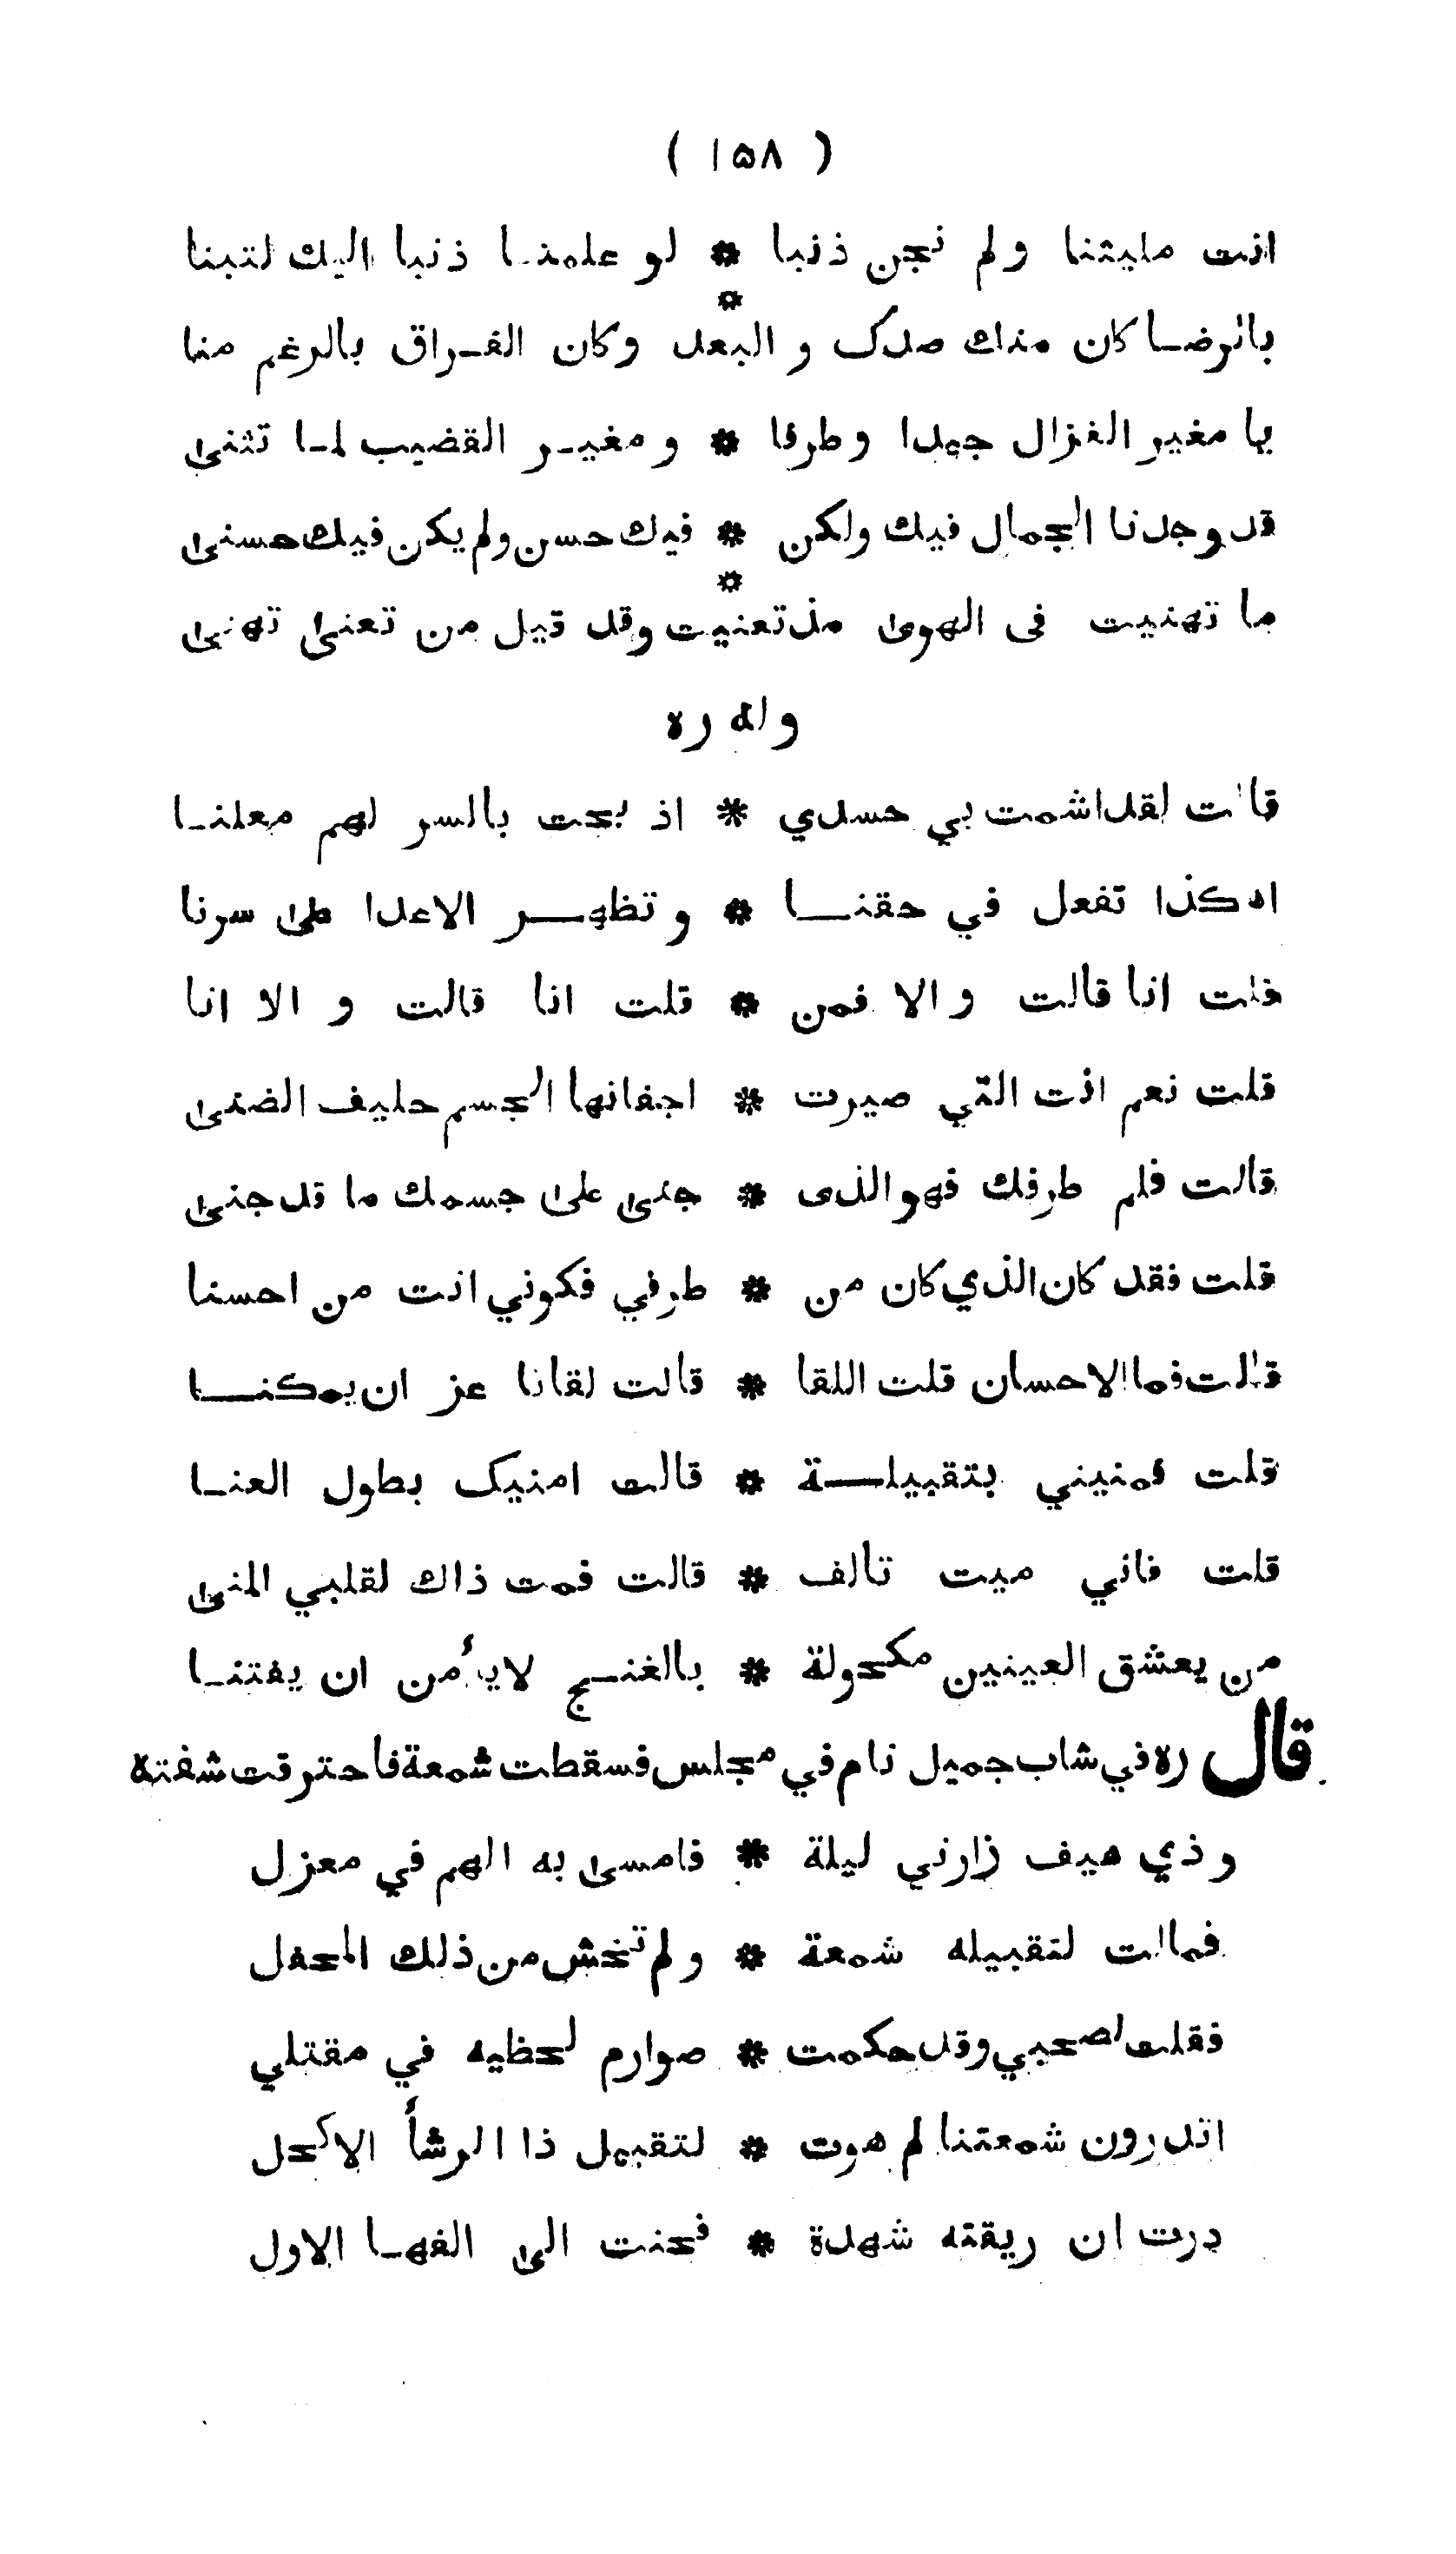 ( ١٥٨ )
انت مليتنا ولم نجن ذنبا * لو علمنا ذنبا اليك لتبنا
بالرضا كان منك صدك و البعد * وكان الفراق بالرغم منا
يا مغير الغزال جيدا وطرفا * و مغير القضيب لما تثنى
قد وجدنا الجمال فيك ولكن * فيك حسن ولم يكن فيك حسنى
ما تهنيت فى الهوى مذ تعنيت * وقد قيل من تعنى تهنى
وله ره
قالت لقد اشمت بي حسدي * اذ بحت بالسر لهم معلنا
اهكذا تفعل في حقنا * و تظهر الاعدا على سرنا
قلت انا قالت و الا فمن * قلت انا قالت و الا انا
قلت نعم انت التي صيرت * اجفانها الجسم حليف الضنى
قالت فلم طرفك فهو الذى * جنى على جسمك ما قد جنى
قلت فقد كان الذي كان من * طرفي فكوني انت من احسنا
قالت فما الاحسان قلت اللقا * قالت لقانا عز ان يمكنا
قلت فمنيني بتقبيلة * قالت امنيك بطول العنا
قلت فاني ميت تالف * قالت فمت ذاك لقلبي المنى
من يعشق العينين مكحولة * بالغنج لايأمن ان يفتنا
قال ره في شاب جميل نام في مجلس فسقطت شمعة فاحترقت شفته
وذي هيف زارني ليلة * فامسى به الهم في معزل
فمالت لتقبيله شمعة * ولم تخش من ذلك المحفل
فقلت لصحبي وقد حكمت * صوارم لحظيه في مقتلي
اتدرون شمعتنا لم هوت * لتقبيل ذا الرشأ الاكحل
درت ان ريقته شهدة * فحنت الى الفها الاول